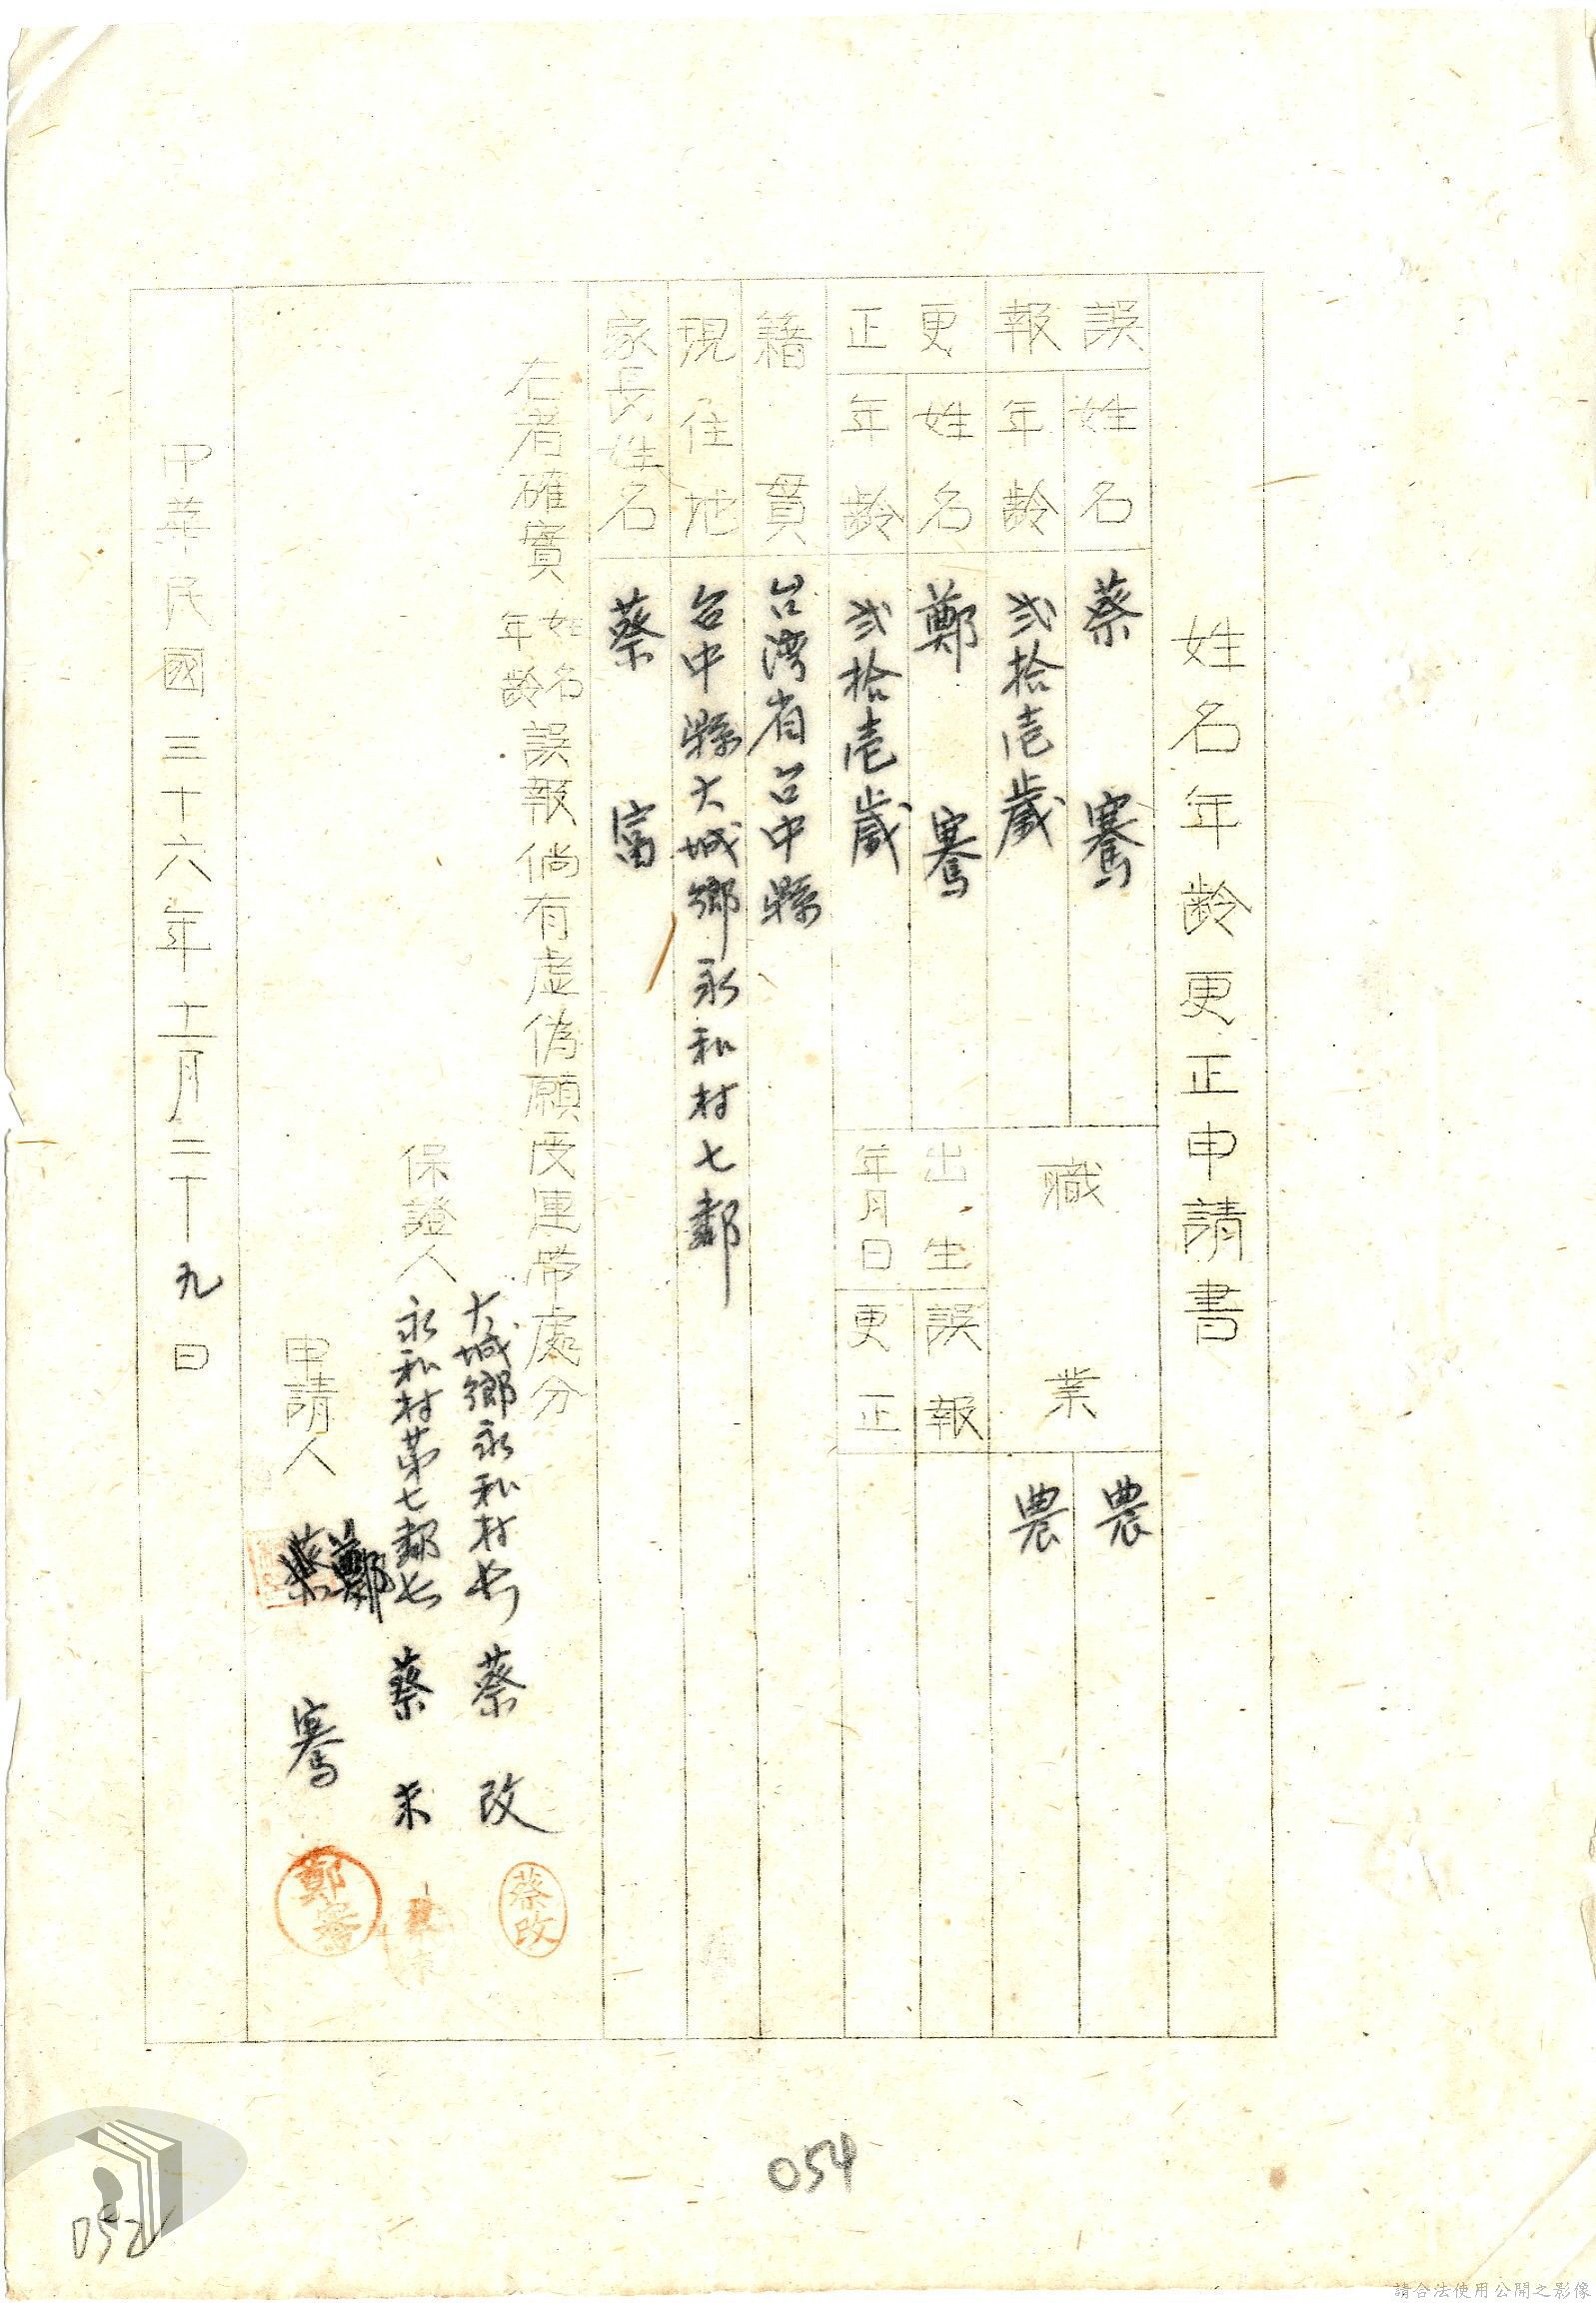 姓名年齡更正申請書
誤報
姓名
蔡騫
年齡
弍拾壱歲
職業
農
農
更正
姓名
鄭騫
年齡
弍拾壱歲
出生年月日
誤報
更正
籍貫
台湾省台中縣
現住地
台中縣大城鄉永和村七鄰
家長姓名
蔡富
右者確實姓名年齡誤報倘有虛偽願受連帶處分
保證人
大城鄉永和村長 蔡改
蔡改
永和村第七鄰長 蔡未
申請人
蔡鄭騫
鄭騫
中華民國三十六年十二月二十九日
054
052
請合法使用公開之影像